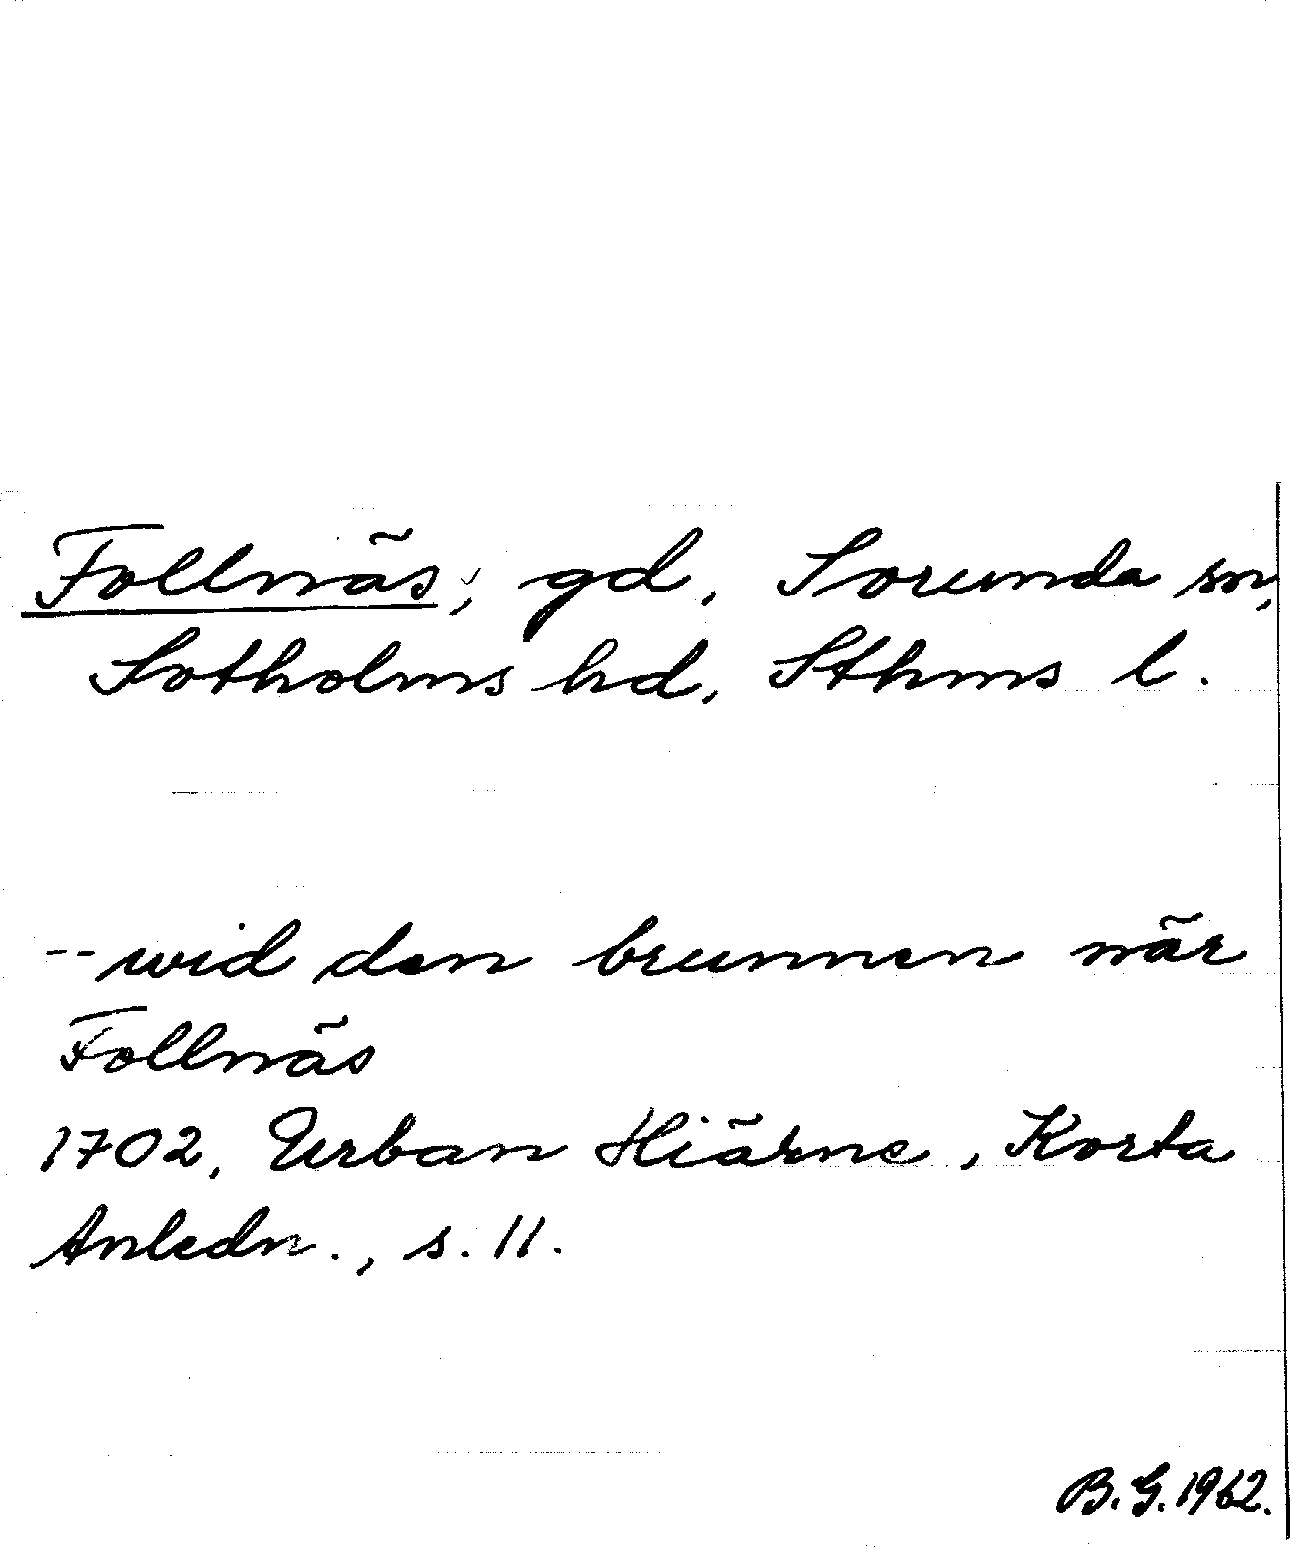 Follnäs, gd, Sorunda sn,
Sotholms hd, Sthms l.
-- wid den brunnen när
Follnäs
1702, Urban Hiärne, Korta
Anledn., s. 11.
B.G. 1962.